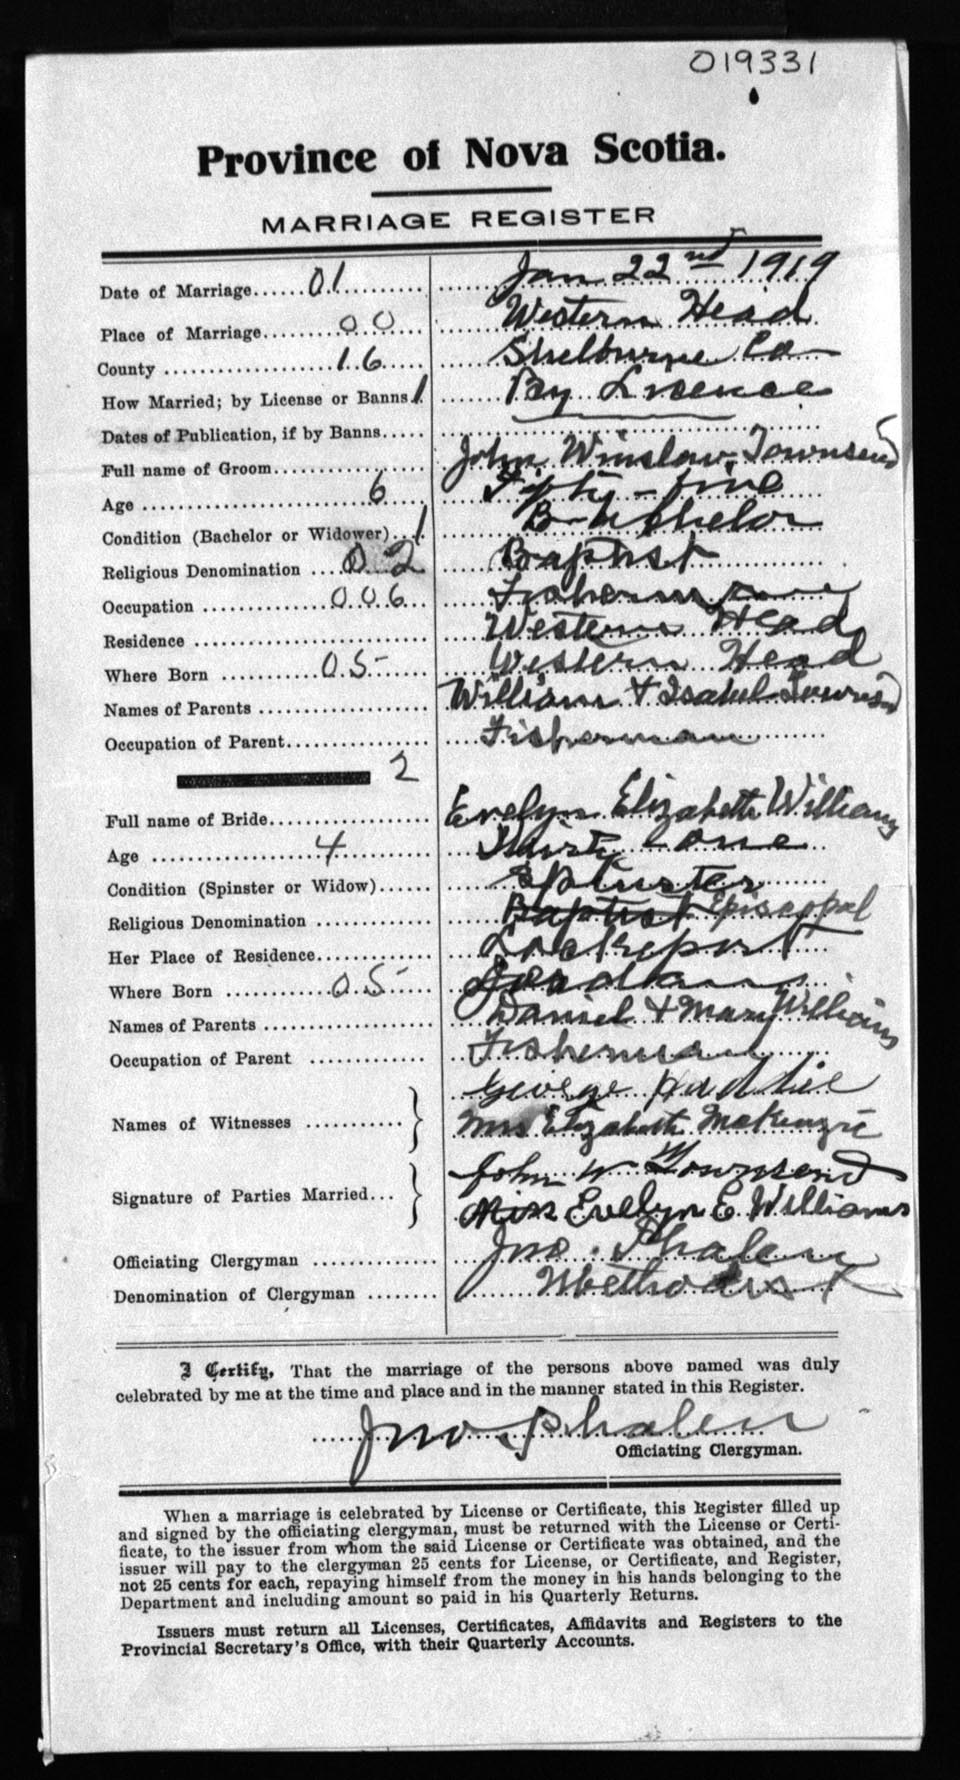 019331
Province of Nova Scotia.
MARRIAGE REGISTER
Date of Marriage......01.......... Jan 22nd 1919
Place of Marriage........00...... Western Head
County ....................16..... Shelburne Co
How Married; by License or Banns.1. By Licence
Dates of Publication, if by Banns.....
Full name of Groom................ John Winslow Townsend
Age ..........................6..... Fifty-five
Condition (Bachelor or Widower)...1 Bachelor
Religious Denomination ....02 Baptist
Occupation ..............006... Fisherman
Residence .......................... Western Head
Where Born ..........05-..... Western Head
Names of Parents .................. William & Isabel Townsend
Occupation of Parent................ Fisherman
2
Full name of Bride.................. Evelyn Elizabeth Williams
Age ..................4............ Thirty one
Condition (Spinster or Widow)...... Spinster
Religious Denomination ............ Baptist Episcopal
Her Place of Residence............. Lockeport
Where Born ..........05-..... Jordan
Names of Parents .................. Daniel & Mary Williams
Occupation of Parent ............ Fisherman
George
Names of Witnesses ........... } Mrs Elizabeth McKenzie
John W Townsend
Signature of Parties Married... } Miss Evelyn E. Williams
Officiating Clergyman ............. Jno. Phalen
Denomination of Clergyman ........ Methodist
I Certify, That the marriage of the persons above named was duly
celebrated by me at the time and place and in the manner stated in this Register.
Jno Phalen
Officiating Clergyman.
When a marriage is celebrated by License or Certificate, this Register filled up
and signed by the officiating clergyman, must be returned with the License or Certi-
ficate, to the issuer from whom the said License or Certificate was obtained, and the
issuer will pay to the clergyman 25 cents for License, or Certificate, and Register,
not 25 cents for each, repaying himself from the money in his hands belonging to the
Department and including amount so paid in his Quarterly Returns.
Issuers must return all Licenses, Certificates, Affidavits and Registers to the
Provincial Secretary's Office, with their Quarterly Accounts.